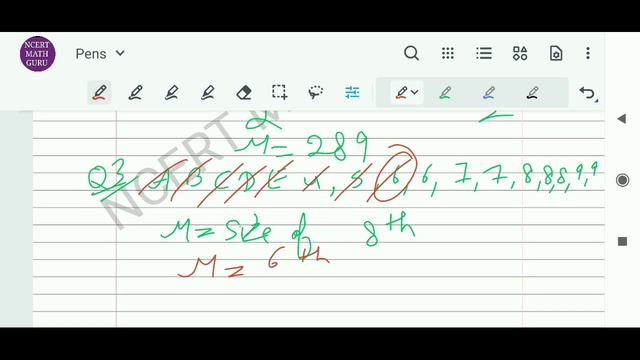 NCERT MATH GURU
Pens
M = 289
Q3 A B C D E X, 5, 6, 6, 7, 7, 8, 8, 8, 9, 9
M = Size of 8th
M = 6th
NCERT M